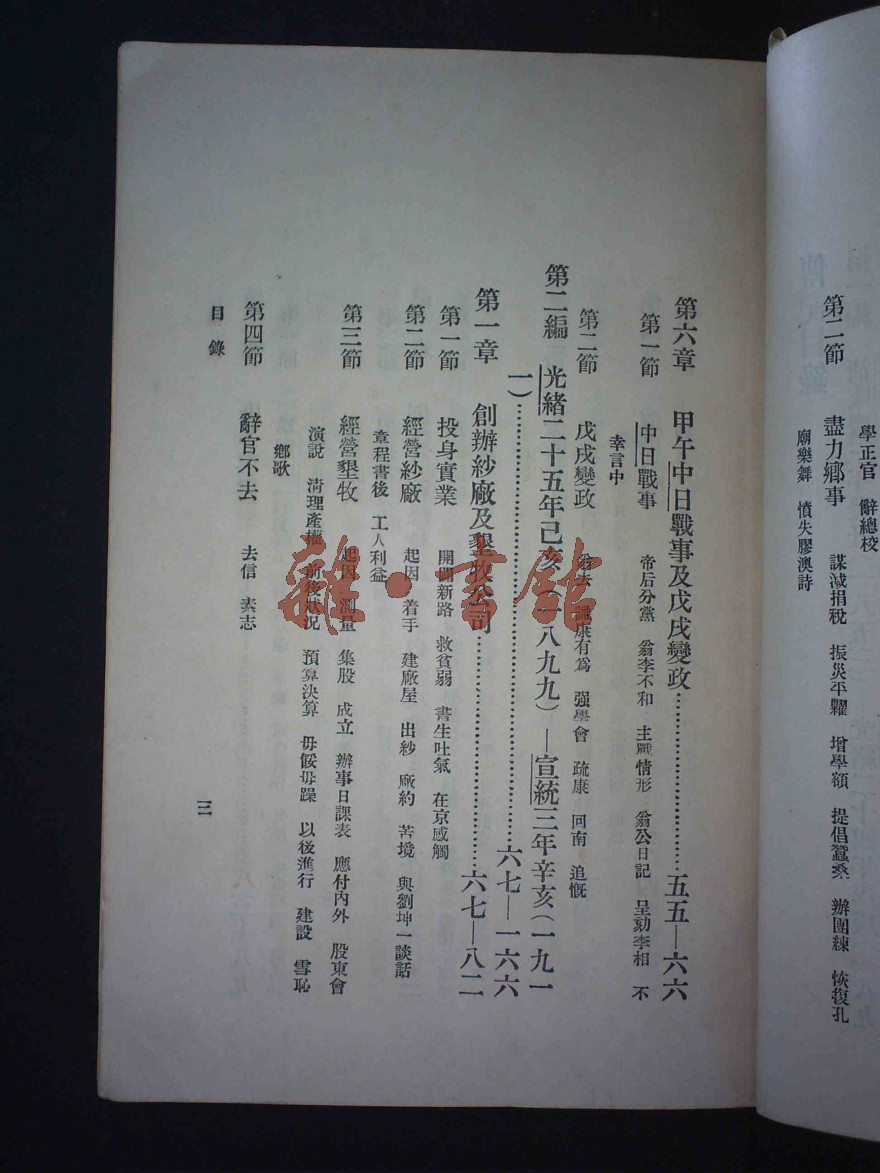 學正官　辭總校
第二節　盡力鄉事　謀減捐稅　振災平糶　增學額　提倡蠶桑　辦團練　恢復孔
廟樂舞　憤失膠澳詩
第六章　甲午中日戰事及戊戌變政……………………五五—六六
第一節　中日戰事　帝后分黨　翁李不和　主戰情形　翁公日記　呈劾李相　不
幸言中
第二節　戊戌變政　翁去　識康有爲　强學會　疏康　回南　追慨
第二編　光緒二十五年己亥（一八九九）—宣統三年辛亥（一九一
一）……………………六七—一六六
第一章　創辦紗廠及墾牧公司……………………六七—八二
第一節　投身實業　開闢新路　救貧弱　書生吐氣　在京感觸
第二節　經營紗廠　起因　着手　建廠屋　出紗　廠約　苦境　與劉坤一談話
章程書後　工人利益
第三節　經營墾牧　起因　測量　集股　成立　辦事日課表　應付內外　股東會
演說　清理產權　前後狀況　預算決算　毋餒毋躁　以後進行　建設　雪恥
鄉歌
第四節　辭官不去　去信　素志
目錄
三
雜·書館